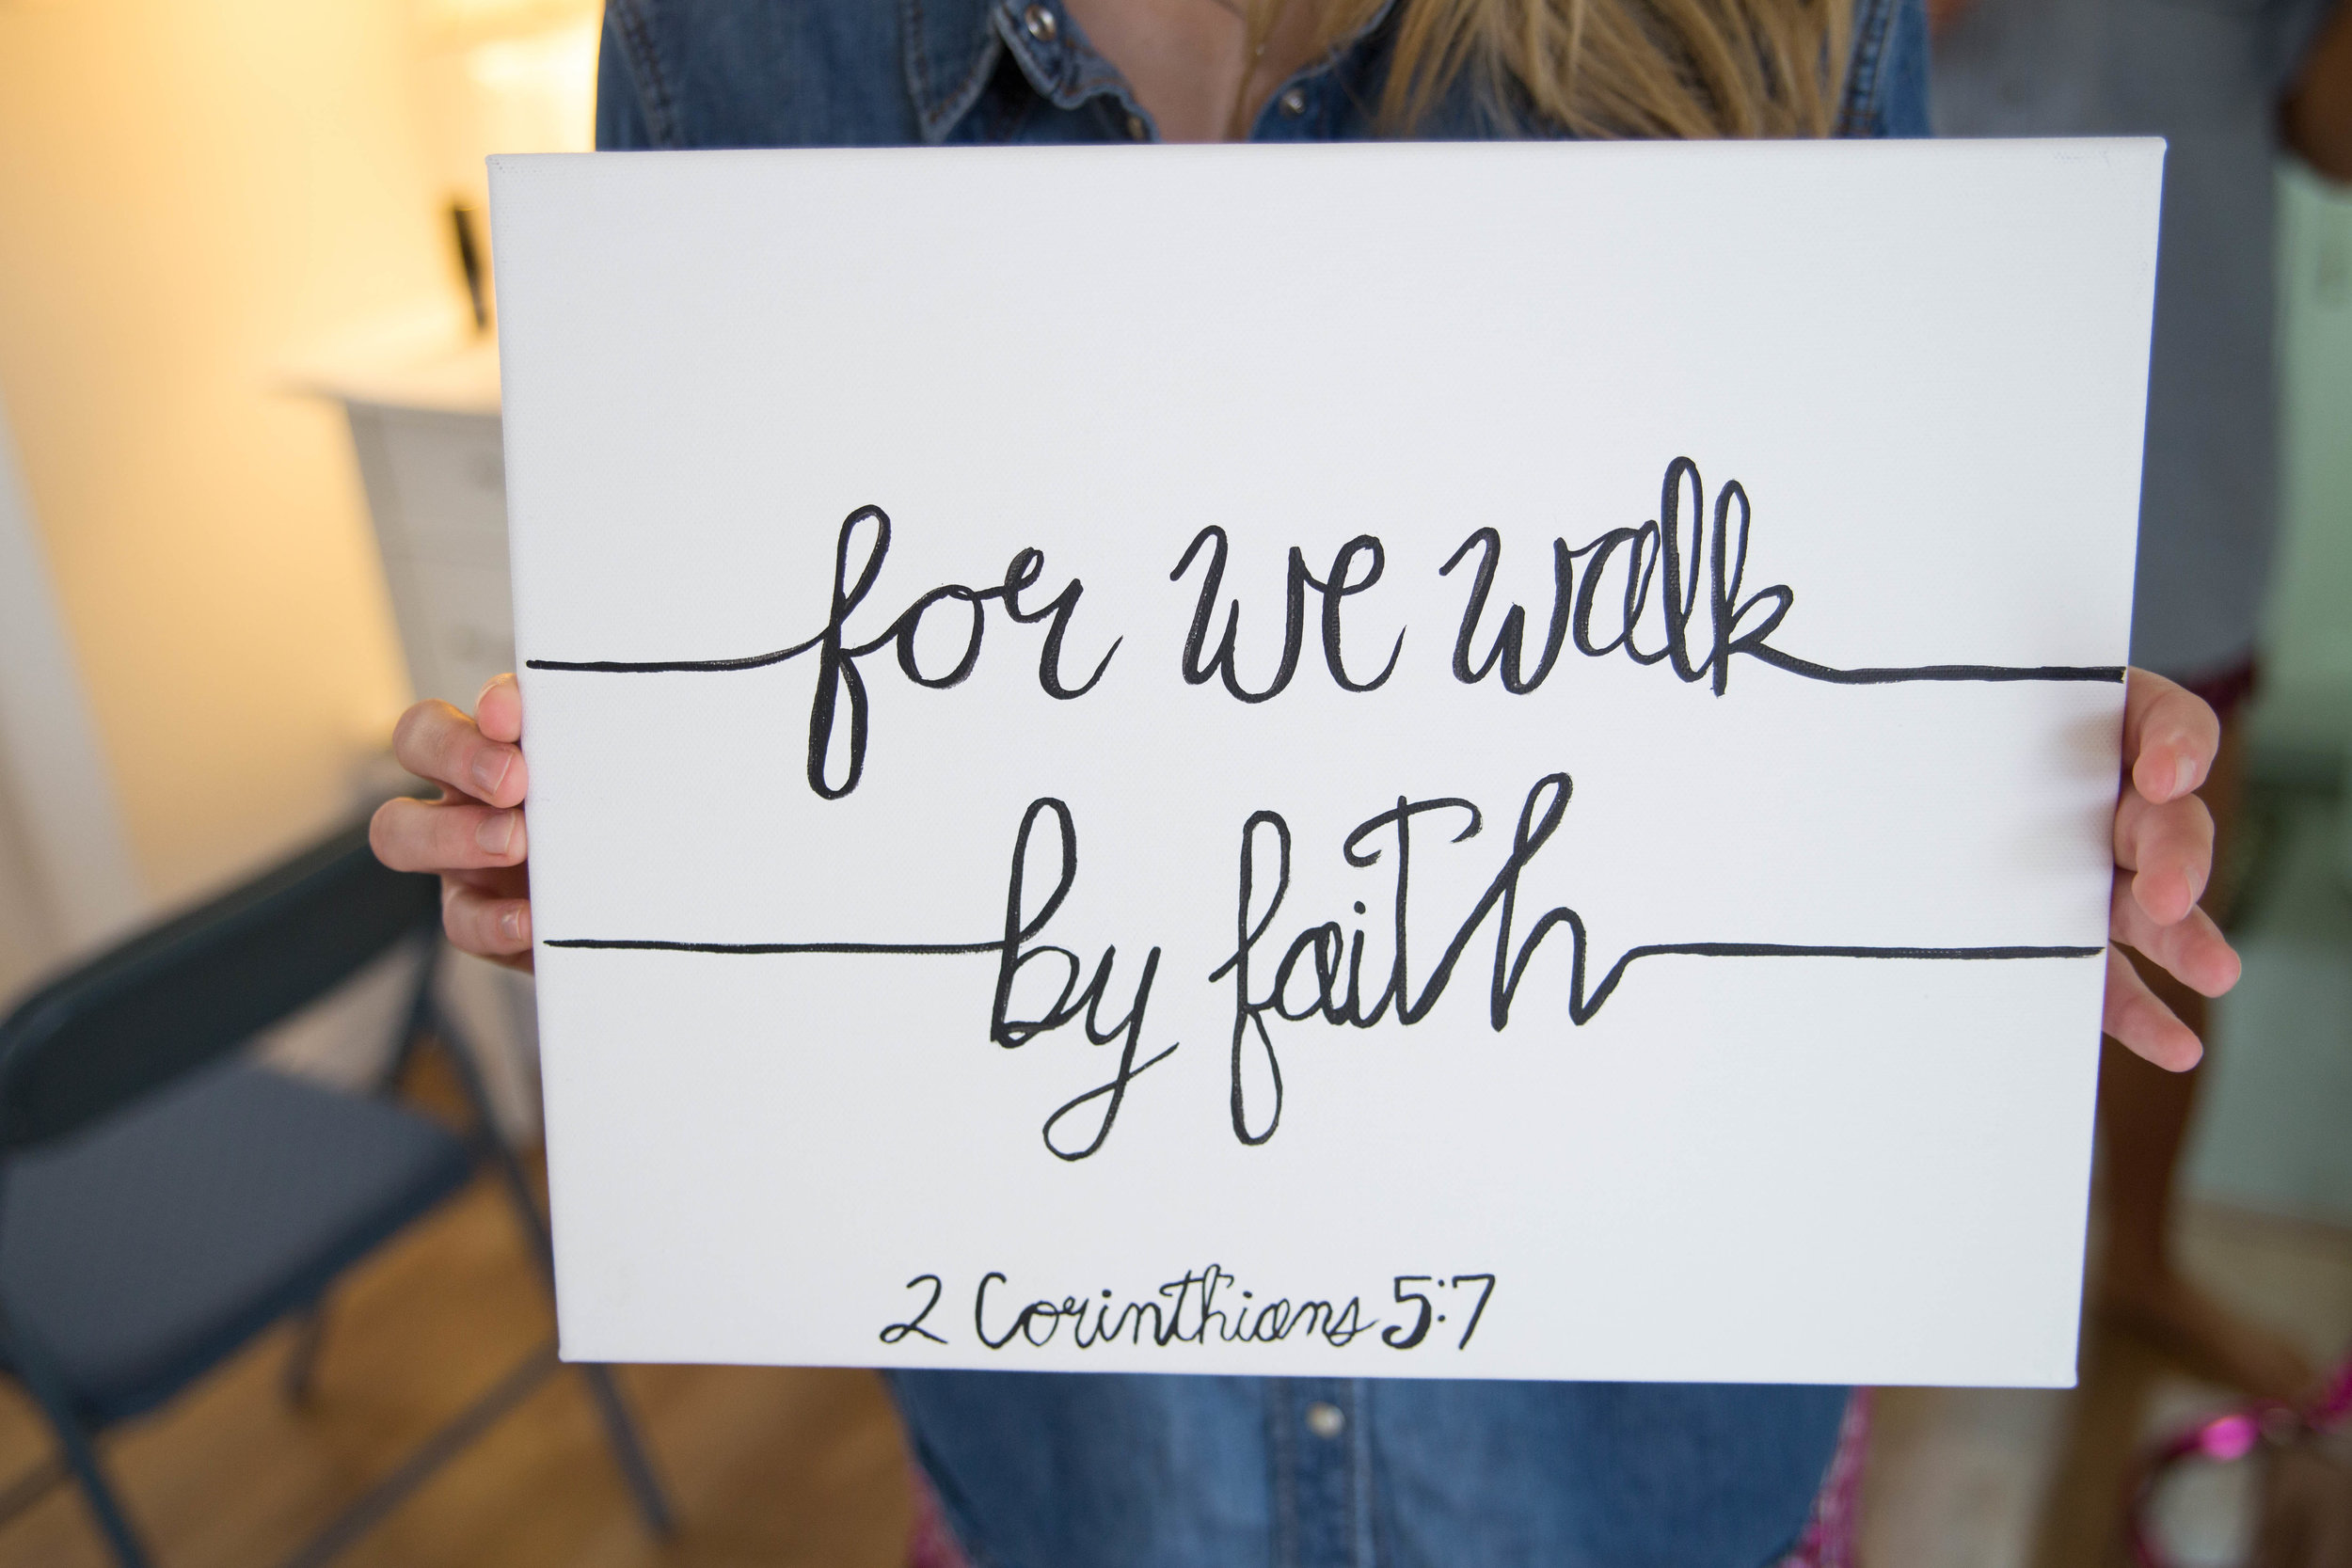 for we walk
by faith
2 Corinthians 5:7